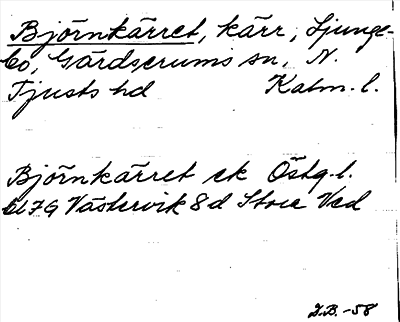 Björnkärret, kärr, Ljunge-
bo, Gärdserums sn, N.
Tjusts hd Kalm. l.
Björnkärret ek Östg. l.
bl 7G Västervik 8d Stora Ved
J.B. -58